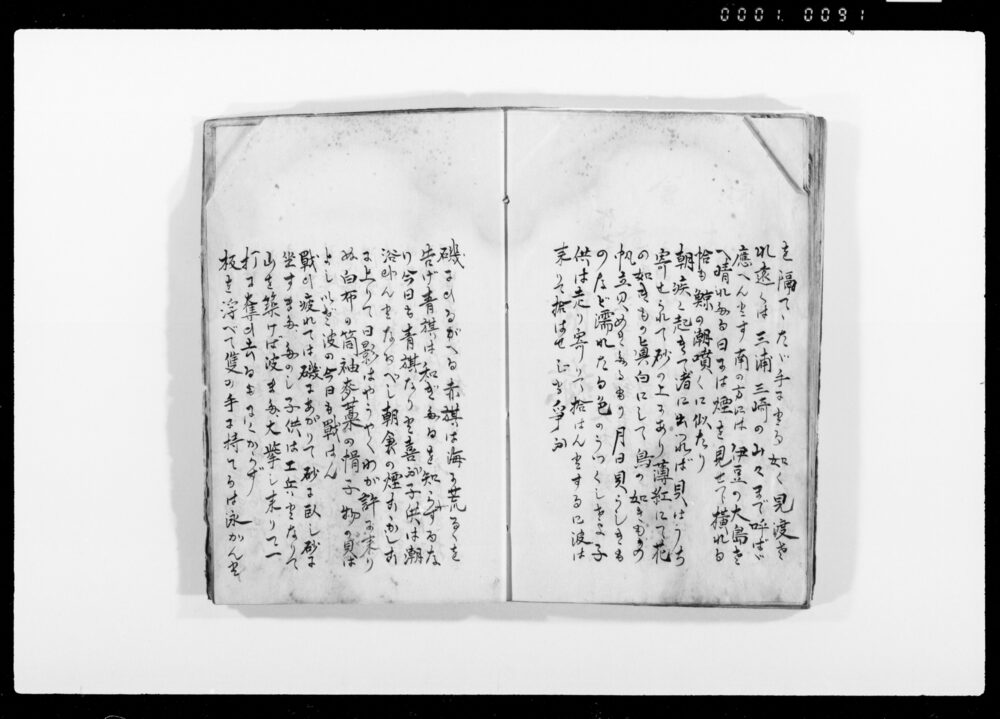 0001 0091
を隔てたゞ手にとる如く見渡さ
れ遠くは三浦三崎の山々まで呼ばゞ
應へんとす南の方には伊豆の大島さ
へ晴れたる日には煙を見せて横れる
恰も鯨の潮噴くに似たり
朝疾く起きて渚に出づれば貝はうち
寄せられて砂の上にあり薄紅にて花
の如きもの真白にして鳥の如きもの
帆立貝めきたるもあり月日貝らしきも
のなど濡れたる色のうつくしさよ子
供は走り寄りて拾はんとするに波は
来りて拾はせじと争ふ
磯にひるがへる赤旗は海の荒るゝを
告げ青旗は和ぎたるを知らするな
り今日も青旗なりと喜ぶ子供は潮
浴びんとなるべし朝食の煙
に上りて日影はやうやくわが許に来り
ぬ白布の筒袖麥藁の帽子物の具は
よしいざ波の今日も戰はん
戰ひ疲れては磯にあがりて砂に臥し砂に
坐すまたたのし子供は工兵となりて
山を築けば波また大挙し来りて一
打に奪ひ去るもにくからず
板を浮べて隻の手に持てるは泳がんと